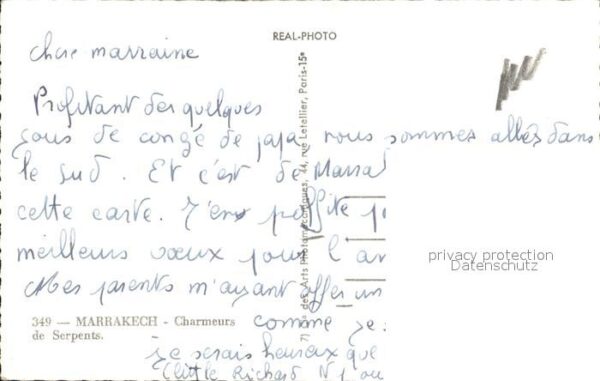 REAL-PHOTO
chère marraine
Profitant des quelques
jours de congé de papa nous sommes allés dans
le sud. Et c'est de Marra
cette carte. J'en profite p
meilleurs vœux pour l'an
Mes parents m'ayant offer un
349 — MARRAKECH - Charmeurs
de Serpents.
comme je
je serais heureux que
(little Richard N 1 ou
des Arts Photomécaniques, 44, rue Letellier, Paris-15e
privacy protection
Datenschutz